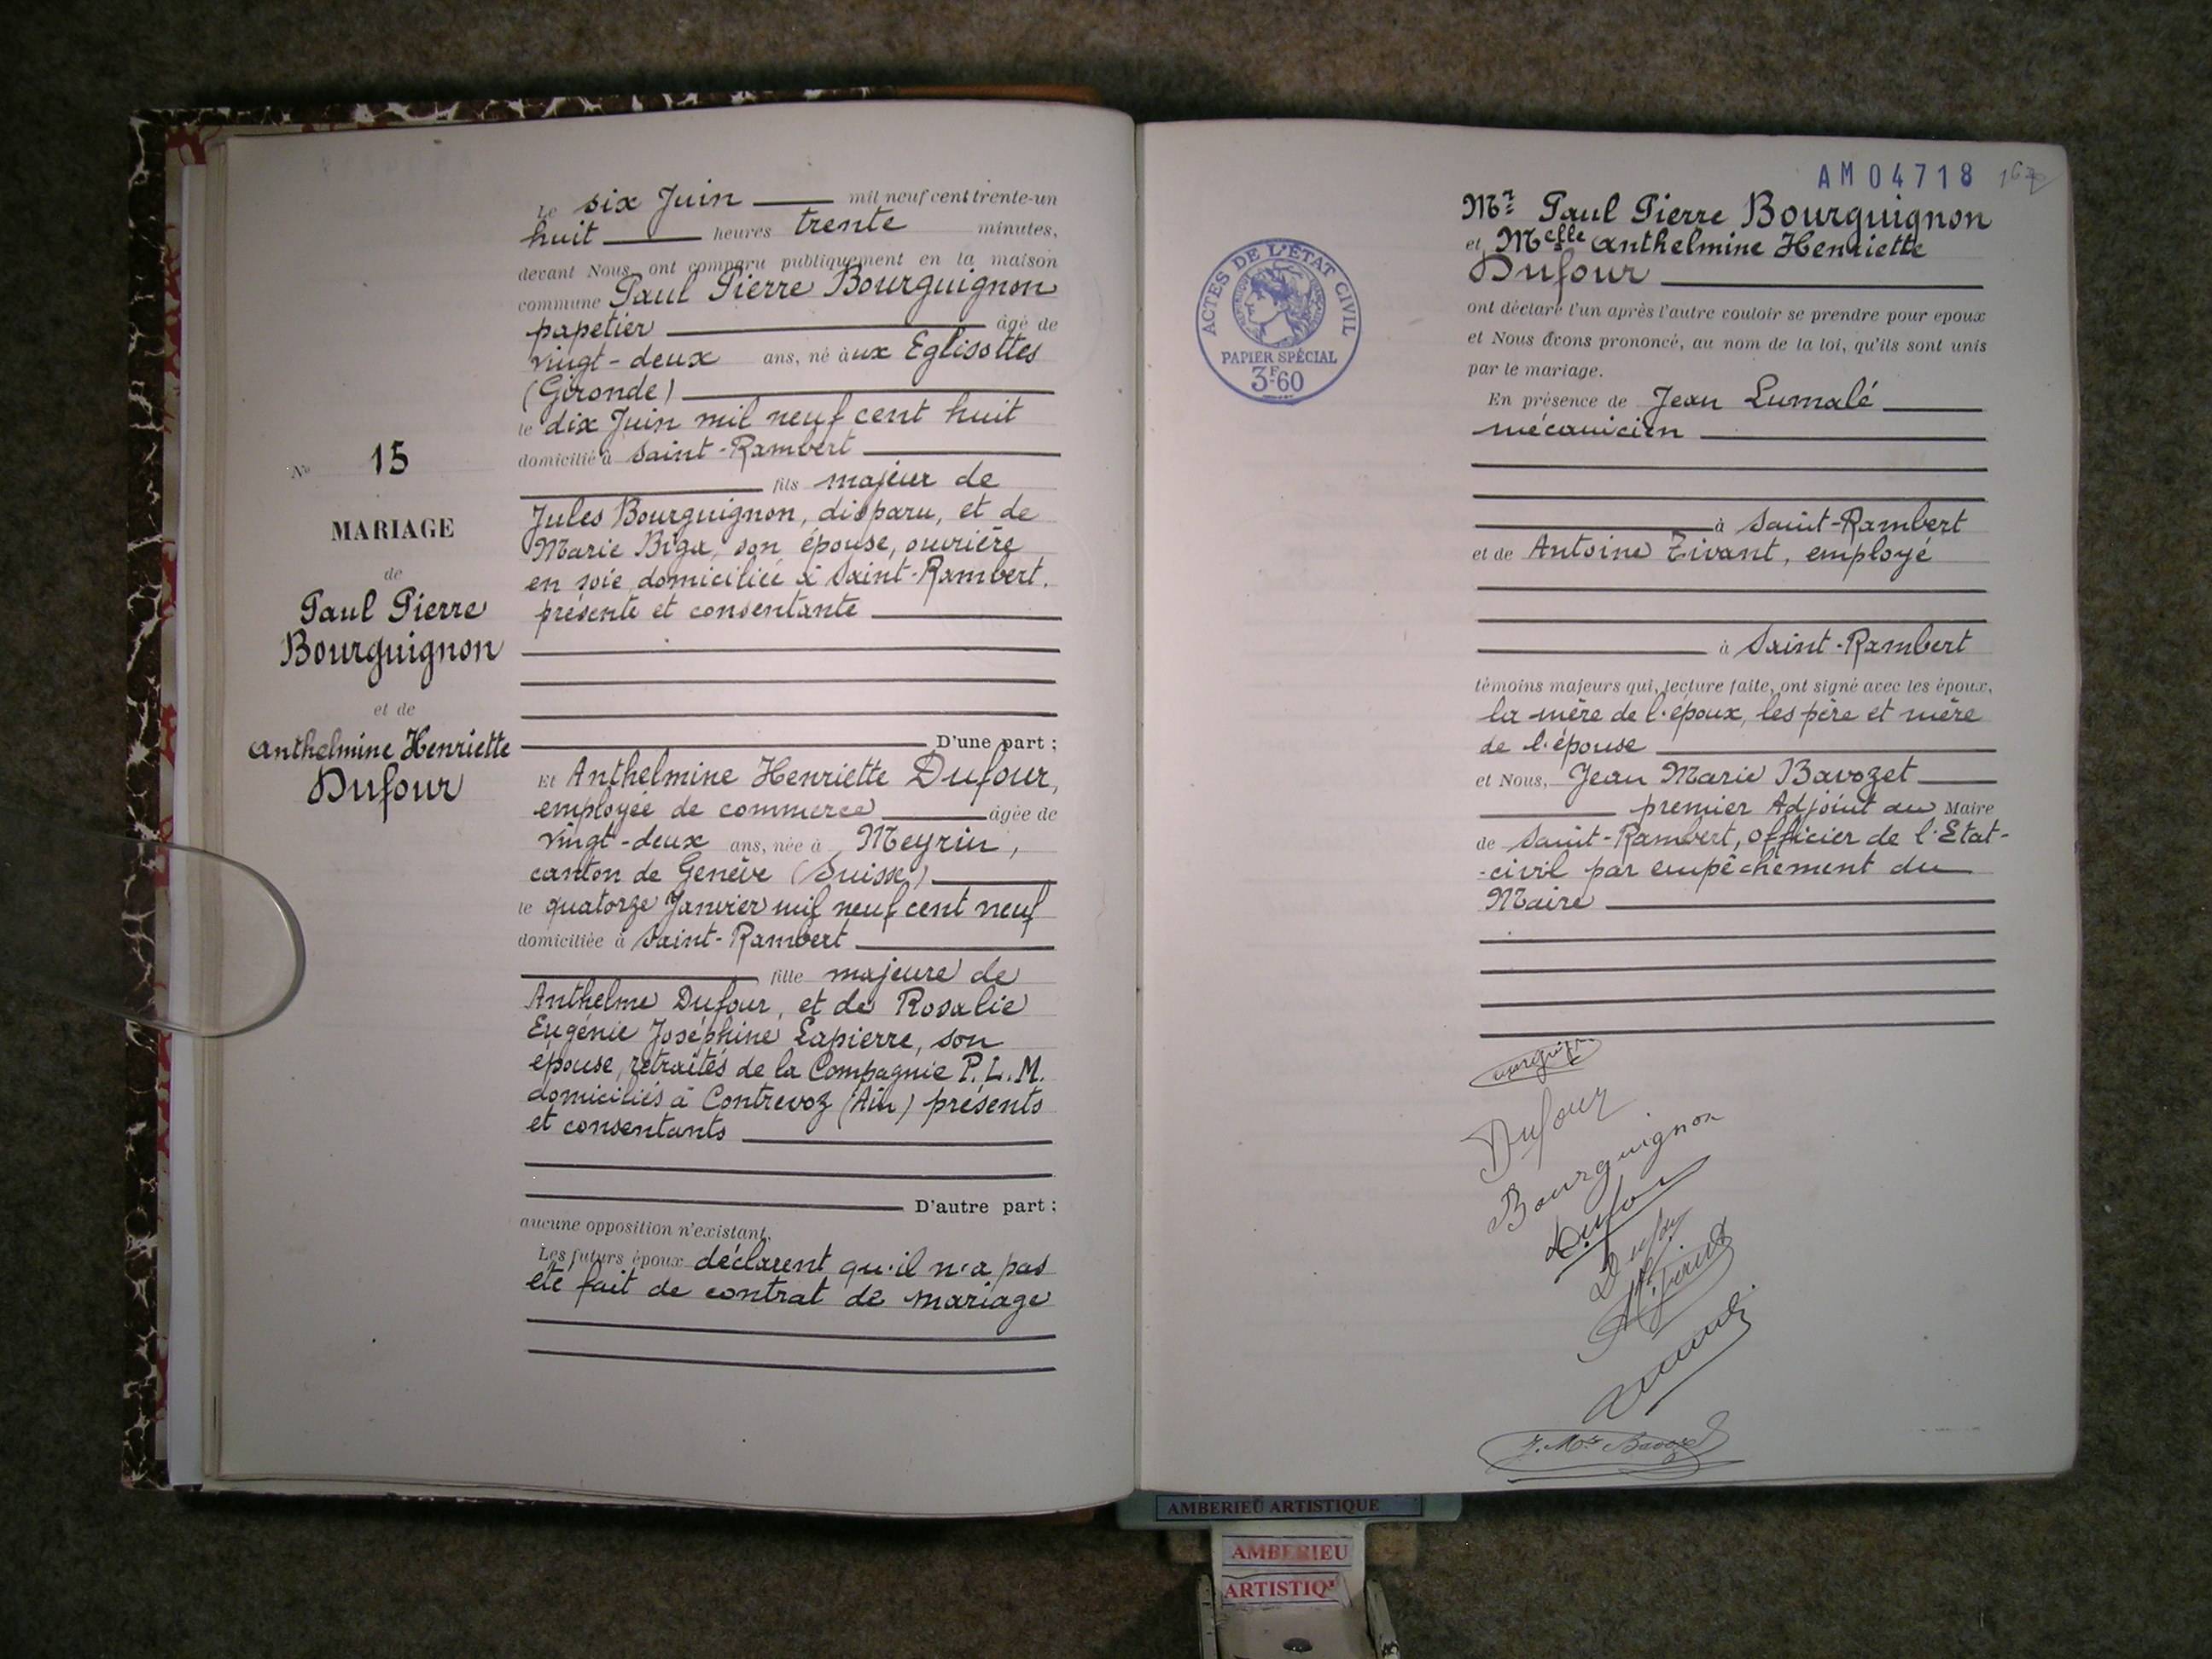 N° 15
MARIAGE
de
Paul Pierre
Bourguignon
et de
Anthelmine Henriette
Dufour
Le six Juin mil neuf cent trente-un
huit heures trente minutes,
devant Nous ont comparu publiquement en la maison
commune Paul Pierre Bourguignon
papetier âgé de
vingt-deux ans, né àux Eglisottes
(Gironde)
le dix Juin mil neuf cent huit
domicilié à Saint-Rambert
fils majeur de
Jules Bourguignon, disparu, et de
Marie Biga, son épouse, ouvrière
en soie domiciliée à Saint-Rambert.
présente et consentante
D'une part ;
Et Anthelmine Henriette Dufour,
employée de commerce âgée de
vingt-deux ans, née à Meyrin,
canton de Genève (Suisse)
le quatorze Janvier mil neuf cent neuf
domiciliée à Saint-Rambert
fille majeure de
Anthelme Dufour, et de Rosalie
Eugénie Joséphine Lapierre, son
épouse, retraités de la Compagnie P.L.M.
domiciliés à Contrevoz (Ain) présents
et consentants
D'autre part ;
aucune opposition n'existant.
Les futurs époux déclarent qu'il n'a pas
été fait de contrat de mariage
AM04718
ACTES DE L'ÉTAT CIVIL
PAPIER SPÉCIAL
3F60
Mr Paul Pierre Bourguignon
et Melle Anthelmine Henriette
Dufour
ont déclaré l'un après l'autre vouloir se prendre pour epoux
et Nous avons prononcé, au nom de la loi, qu'ils sont unis
par le mariage.
En présence de Jean Lumalé
mécanicien
à Saint-Rambert
et de Antoine Tivant, employé
à Saint-Rambert
témoins majeurs qui, lecture faite, ont signé avec les époux,
la mère de l'époux, les père et mère
de l'épouse
et Nous, Jean Marie Bavozet
premier Adjoint au Maire
de Saint-Rambert, officier de l'Etat-
-civil par empêchement du
Maire
Dufour
Bourguignon
Dufour
J. Me Bavozet
AMBERIEU ARTISTIQUE
AMBERIEU
ARTISTIQ